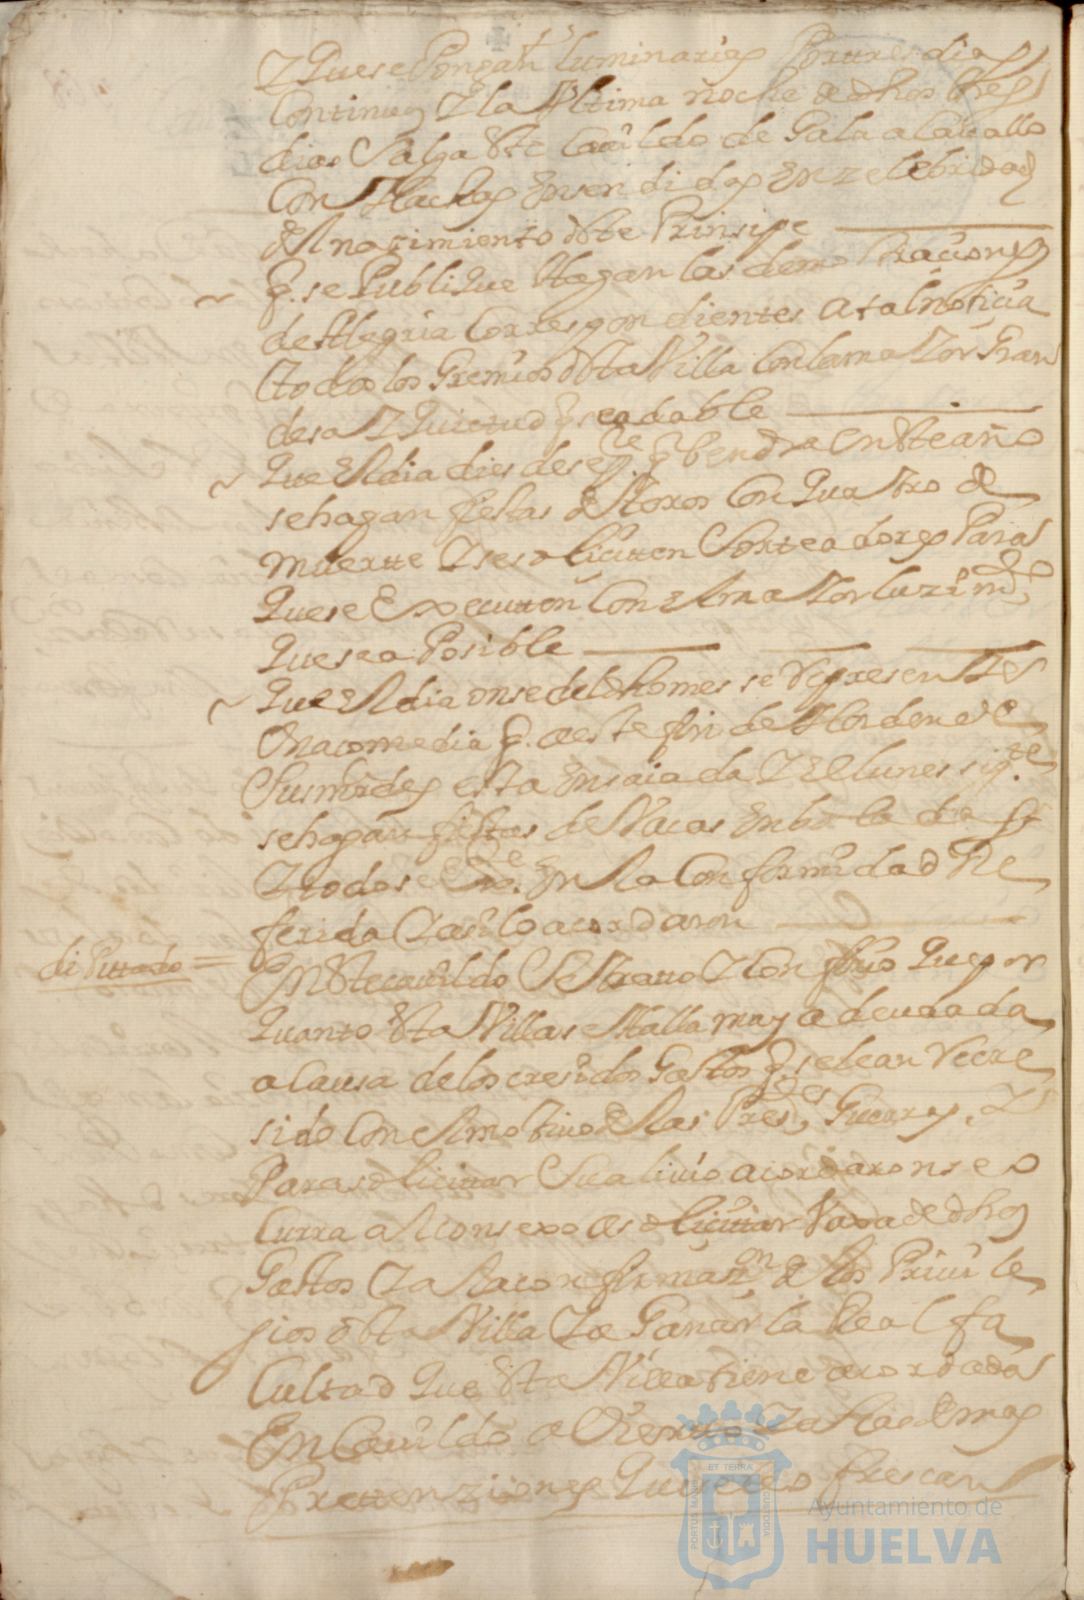 Y que se Pongan luminarias Por tres dias
Continuos Y la Vltima noche de dhos tres
dias Salga Este Cauildo de Gala a Cauallo
Con Hachas Ensendidas En zelebridad
del nacimiento deste Prinsipe
q. se Publique Hagan las demostraciones
de Alegria Correspondientes a tal notiçia
todos los Gremios desta Villa Con la maYor Gran
desa Y Quietud q sea dable
Que El dia dies de sepe. q bendra En Este año
se hagan fiestas de toros Con Quatro de
muertte Y se soliçitten Sorteadores Para
Que se Executten Con El maYor luzimto
Que sea Posible
Que El dia onse del dho mes se Represente
Vna comedia q. a este fin de Horden de
Sus mrdes esta Ensaiada Y El lunes sigte
se hagan fiestas de Vacas En
Y todo se Exe. En la Conformidad Re
ferida Y asi lo acordaron
diPuttado = En Este cauildo Se tratto Y Confirio Que por
Quanto Esta Villa se Halla muy adeudada
a Causa de los cresidos Gastos q se le an Recre
sido Con El motiuo de las Presentes Guerras, Y
Para soliçittar Su aliuio acordaron se o
Curra al Consexo a soliçittar Vaxa de dhos
Gastos Y a la confirmazon de los Priuile
gios desta Villa Y a Ganar la Real fa
Cultad Que Esta Villa tiene acordada
En Cauildo a Vierto Y a las demas
Prettenziones Que se ofrescan
ET TERRÆ
PORTUS MARIS
CUSTODIA
Ayuntamiento de
HUELVA